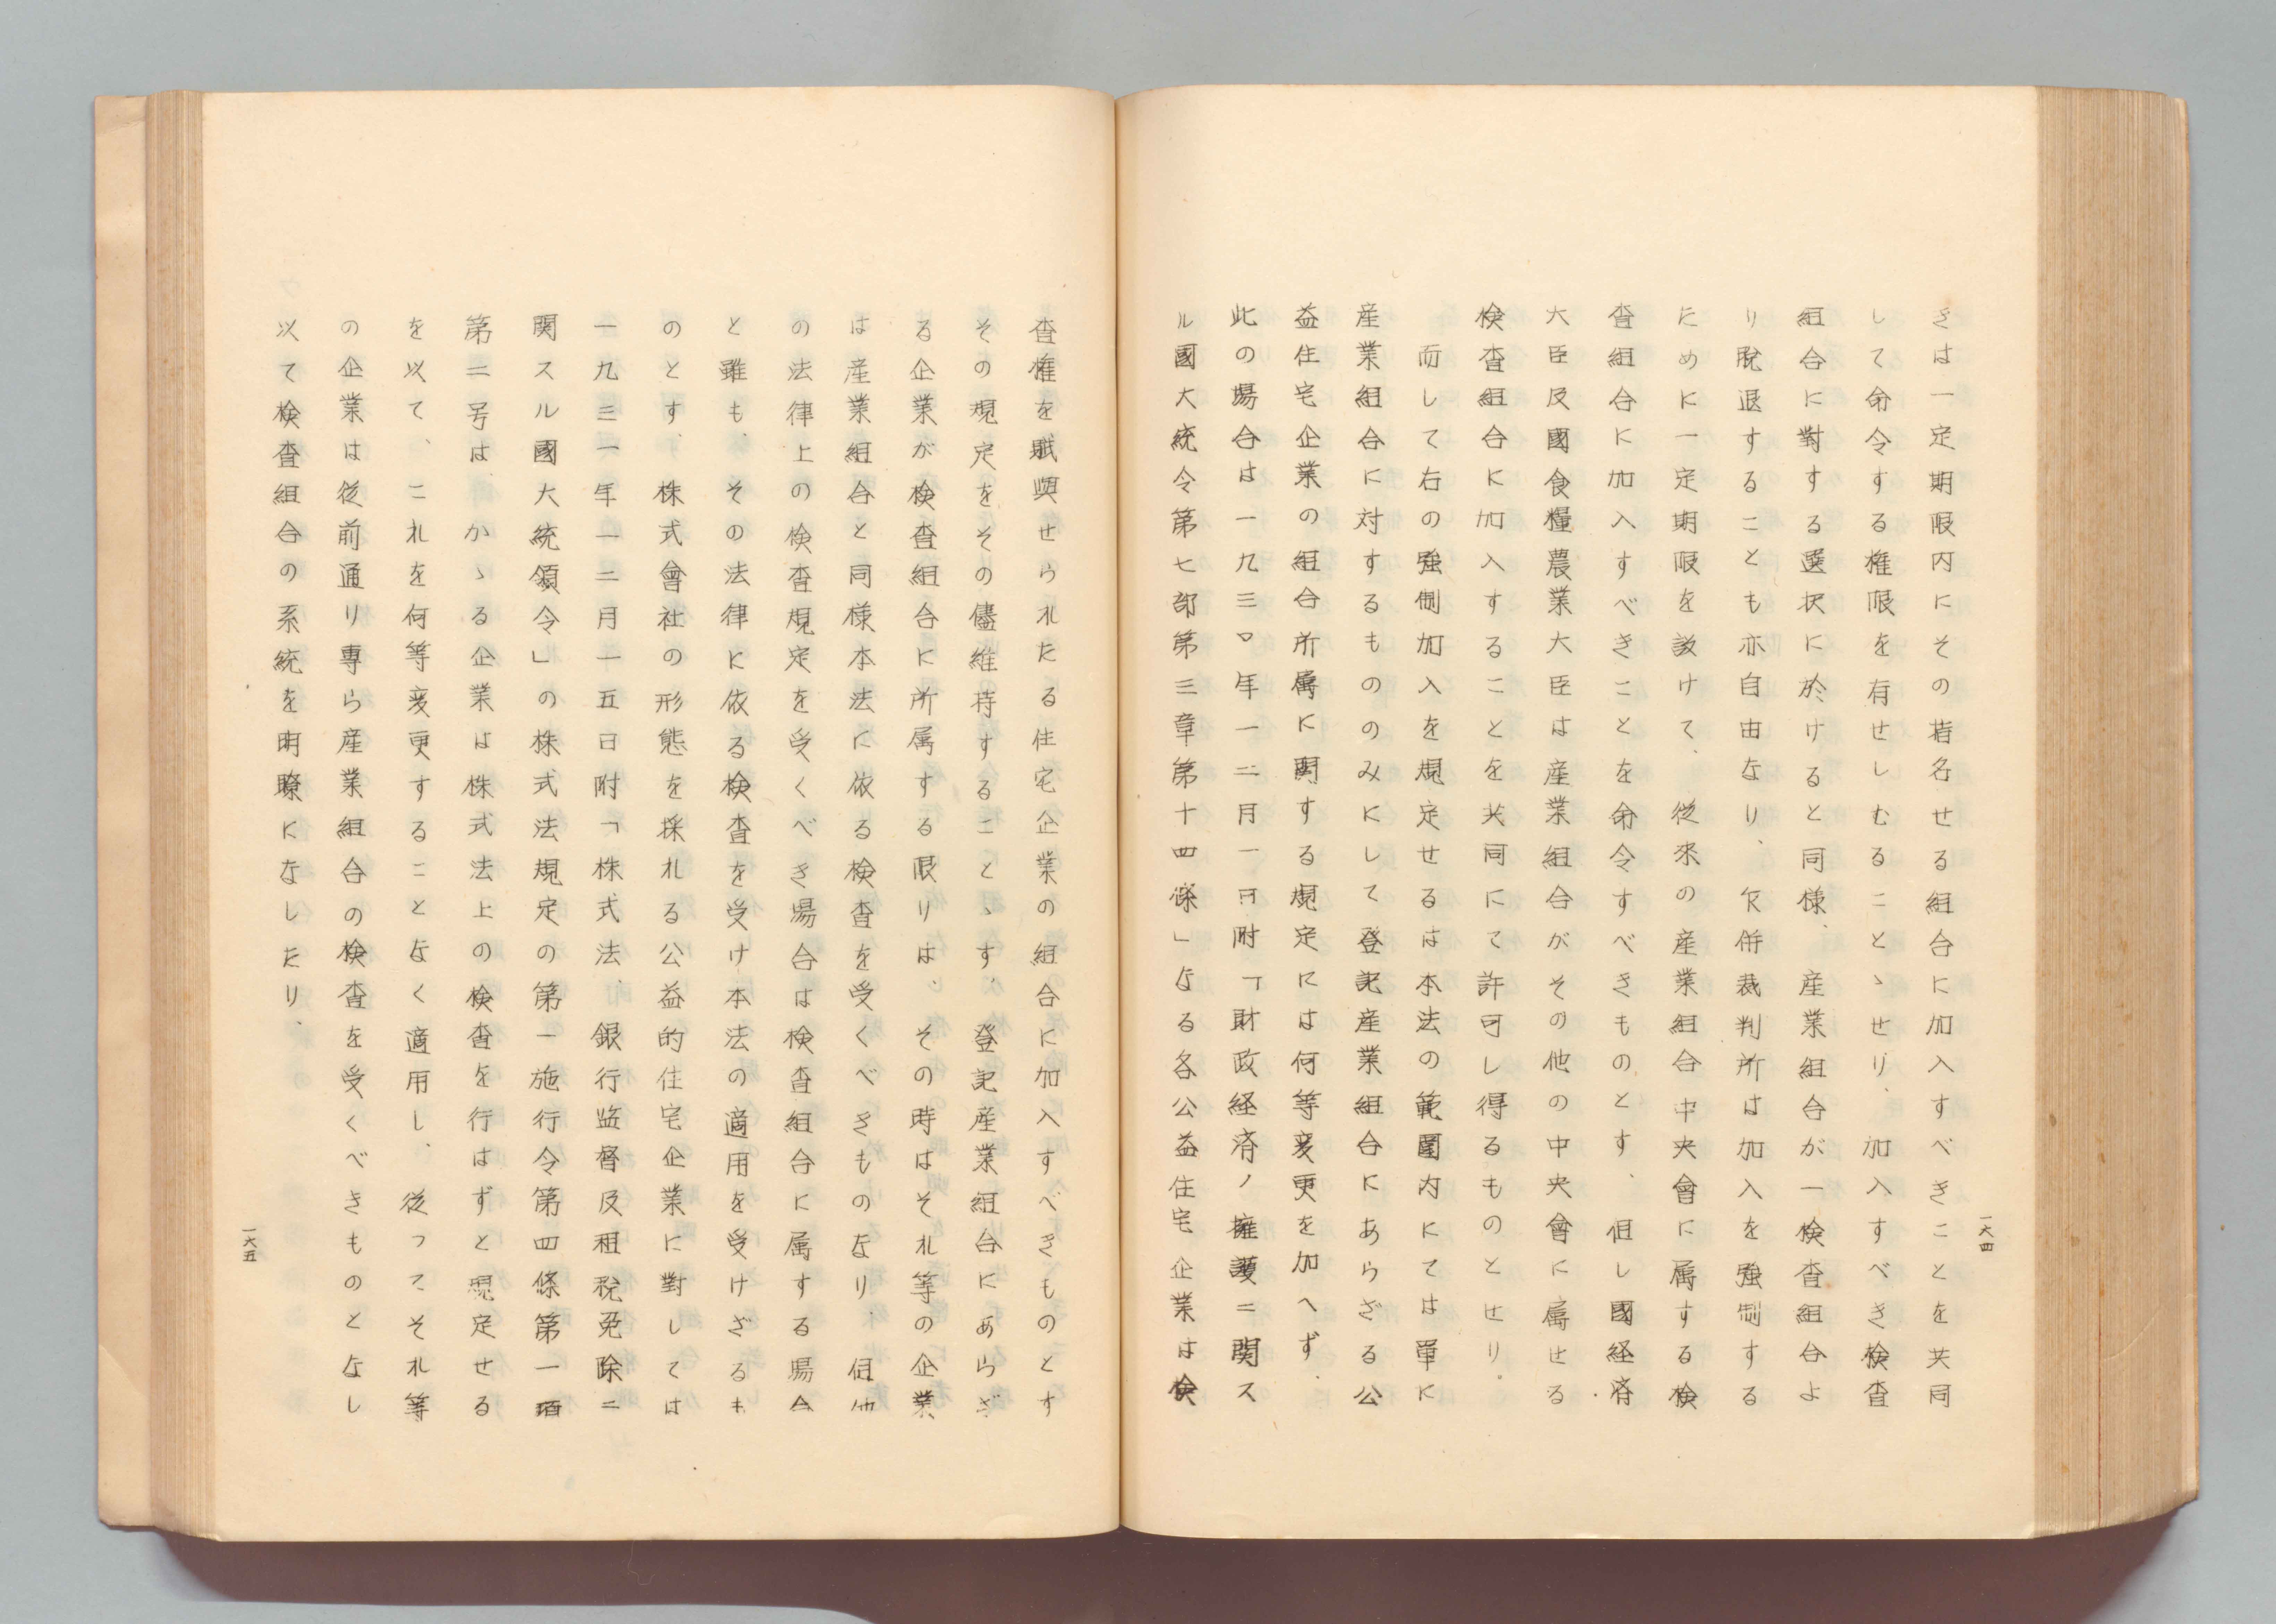 きは一定期限内にその指名せる組合に加入すべきことを共同
して命令する権限を有せしむることゝせり、加入すべき検査
組合に對する選択に於けると同様、産業組合が一検査組合よ
り脱退することも亦自由なり、欠併裁判所は加入を強制する
ために一定期限を設けて、従来の産業組合中央會に属する検
査組合に加入すべきことを命令すべきものとす、但し國経済
大臣及國食糧農業大臣は産業組合がその他の中央會に属せる
検査組合に加入することを共同にて許可し得るものとせり。
而して右の強制加入を規定せるは本法の範圍内にては単に
産業組合に対するもののみにして登記産業組合にあらざる公
益住宅企業の組合所属に関する規定には何等変更を加へず、
此の場合は一九三〇年一二月一日附「財政経済ノ擁護ニ関ス
ル國大統令第七部第三章第十四條」なる各公益住宅企業は検
一六四
査権を賦與せられたる住宅企業の組合に加入すべきものとす
その規定をその儘維持することゝす、登記産業組合にあらざ
る企業が検査組合に所属する限りは、その時はそれ等の企業
は産業組合と同様本法に依る検査を受くべきものなり、但他
の法律上の検査規定を受くべき場合は検査組合に属する場合
と雖も、その法律に依る検査を受け本法の適用を受けざるも
のとす、株式會社の形態を採れる公益的住宅企業に對しては
一九三一年一二月一五日附「株式法、銀行監督及租税免除ニ
関スル國大統領令」の株式法規定の第一施行令第四條第一項
第二号は、かゝる企業は株式法上の検査を行はずと規定せる
を以て、これを何等変更することなく適用し、従つてそれ等
の企業は従前通り専ら産業組合の検査を受くべきものとなし
以て検査組合の系統を明瞭になしたり、
一六五